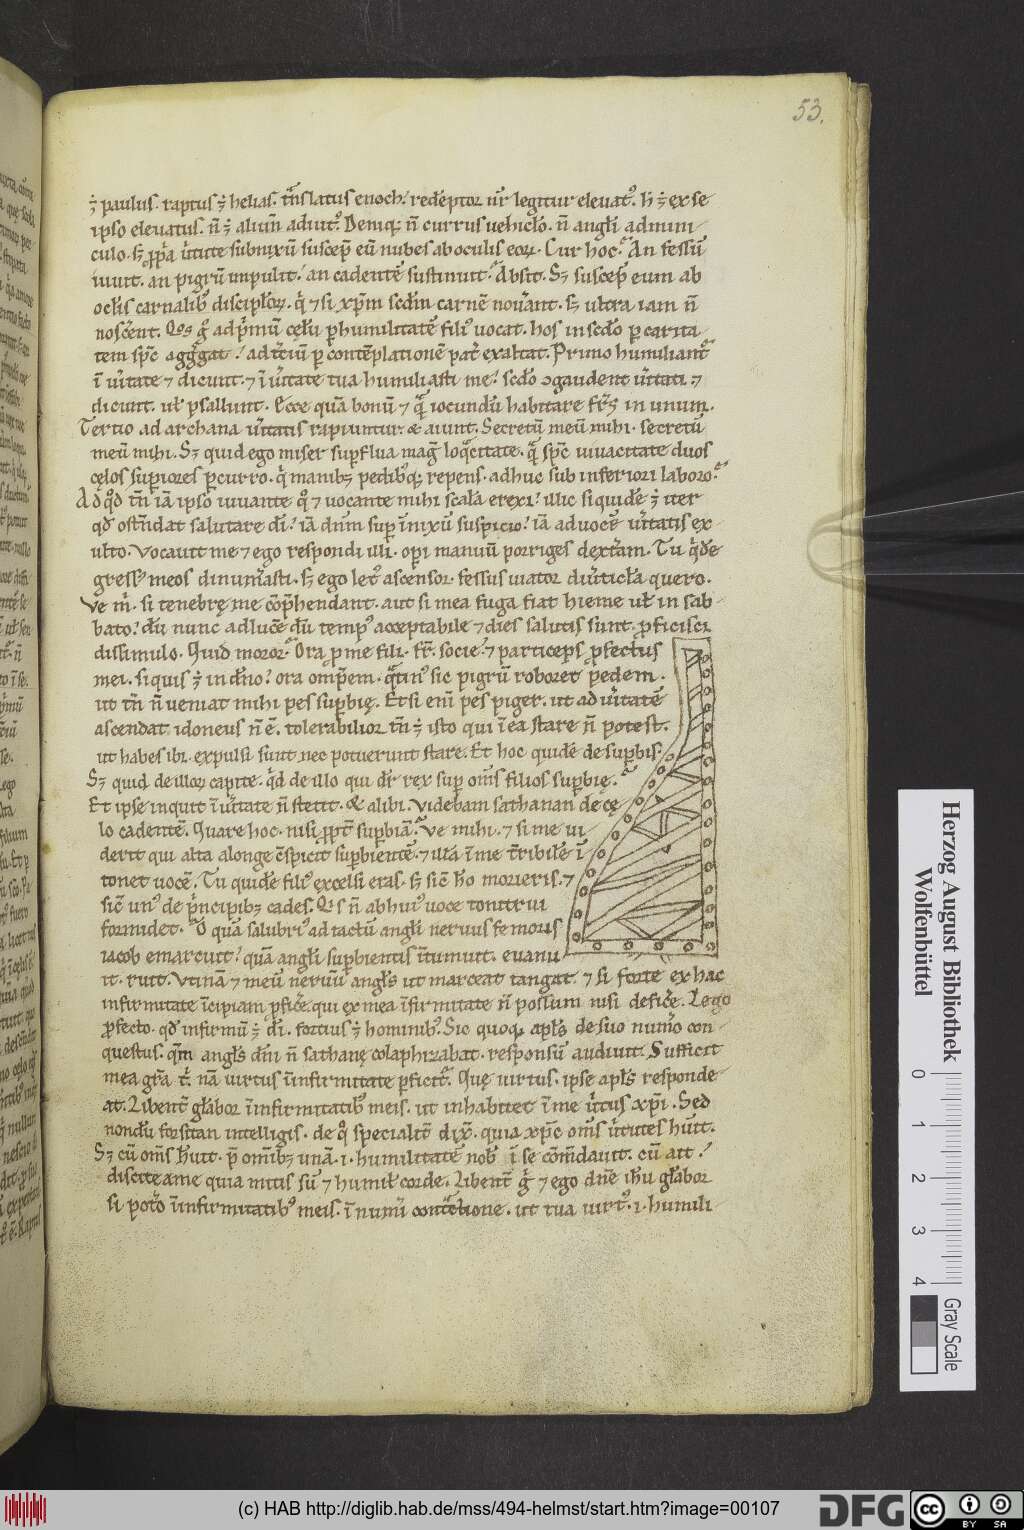 53.
ẜ paulus. raptus ẜ helias. tñslatus enoch. redēptor nr̄ legitur eleuatꝰ. h̄ ẜ ex se
ipso eleuatus. n̄ ẜ alium adiutꝰ. Deniqꝫ n̄ currus uehiclo. n̄ angli admini
culo. sꝫ ꝓpͥa uͥtute subnixū suscep̄ eū nubes ab oculis eoꝝ. Cur hoc. An fessū
iuuit. an pigrū impulit. an cadentē sustinuit. Absit. Sꝫ suscep̄ eum ab
oclis carnalibꝰ discipl̄oꝝ. qͥ ⁊ si xp̄m scd̄m carnē nouͣant. sꝫ ultra iam n̄
noscēnt. Qͦs gͦ ad pͥmū cęlū ꝑ humilitatē filiꝰ uocat. hos in scd̄o ꝑ carita
tem sp̄c aggͣgat. ad tͥciū ꝑ contēplationē pat̄ exaltat. Primo humiliantᷣ
ī uͥtate ⁊ dicunt. ⁊ ī uͥtate tua humiliasti me. scd̄o ↄgaudent uͥtati. ⁊
dicunt. ul̄ psallunt. Ecce quā bonū ⁊ qͣ iocundū habitare frs̄ in unum.
Tertio ad archana uͥtatis rapiuntur. & aiunt. Secretū meū mihi. secretū
meū mihi. Sꝫ quid ego miser suꝑflua magͥ loqͣcitate. qͣ sp̄c uiuacitate duos
cęlos suꝑiores ꝑcurro. qͥ manibꝫ pedibꝰqꝫ repens. adhuc sub inferiori laboro.
Ad qͦd tn̄ iā ipso iuuante qͦ ⁊ uocante mihi scalā erexi. illic siquidē ẜ iter
qd̄ ostndat salutare di. iā dn̄m suꝑ innixū suspicio. iā ad uocē uͥtatis ex
ulto. Vocauit me ⁊ ego respondi illi. oꝑi manuū porriges dextͣam. Tu qͥde
gressꝰ meos dinumͣasti. sꝫ ego letꝰ ascensor. fessus uiator diuͥticla quero.
Ve m̄. si tenebrę me cōp̄hendant. aut si mea fuga fiat hieme ul̄ in sab
bato. dū nunc ad lucē dū tempꝰ acceptabile ⁊ dies salutis sunt. ꝓficisci
dissimulo. Quid moror. Ora ꝓ me fili. fr̄. socie. ⁊ particeps ꝓfectus
mei. si quis ẜ in dn̄o. ora omp̄em. qͣtinꝰ sic pigrū roboret pedem.
ut tn̄ n̄ ueniat mihi pes suꝑbię. Etsi eni pes piger. ut ad uͥtatē
ascendat idoneus n̄ ē. tolerabilior tn̄ ẜ isto qui ī ea stare n̄ potest.
ut habes ibi. expulsi sunt nec potuerunt stare. Et hoc quidē de suꝑbis.
Sꝫ quid de illoꝝ capite. qͥd de illo qui dr̄ rex suꝑ oms̄ filios suꝑbię.
Et ipse inquit ī uͥtate n̄ stetit. & alibi. Videbam sathanan de cę
lo cadentē. Quare hoc. nisi ꝓpt̄ suꝑbiā. Ve mihi. ⁊ si me ui
derit qui alta a longe cs̄picit suꝑbientē. ⁊ illā ī me tr̄ibilē ī
tonet uocē. Tu quidē filiꝰ excelsi eras. sꝫ sic̄ hō morieris. ⁊
sic̄ unꝰ de pͥncipibꝫ cades. Qͥs n̄ ab huiꝰ uoce tonitrui
formidet. O quā salubriꝰ ad tactū angli neruus femoris
iacob emarcuit. quā angli suꝑbientis itumuit. euanu
it. ruit. Vtinā ⁊ meū neruū angl̄s ut marceat tangat. ⁊ si forte ex hac
infirmitate īcipiam ꝓficͤe. qui ex mea īfirmitate n̄ possum nisi deficͤe. Lego
ꝓfecto. qd̄ infirmū ẜ di. fortius ẜ hominibꝰ. Sic quoqꝫ apl̄s de suo numͦo con
questus. qͣm angl̄s dn̄i n̄ sathanę colaphizabat. responsū audiuit. Sufficit
mea grā t̄. nā uirtus ī infirmitate ꝑficitᷣ. Quę uirtus. ipse apl̄s responde
at. Libent̄ gl̄abor ī infirmitatibꝰ meis. ut inhabitet ī me uͥtus xp̄i. Sed
nondū forsitan intelligis. de qͣ specialit̄ dix̄. quia xp̄c oms̄ uͥtutes huit.
Sꝫ cū oms̄ huit. p̄ omibꝫ unā. i. humilitatē nobͥ ī se cōmdauit. cū ait.
discite a me quia mitis sū ⁊ humil̄ corde. Libent̄ gͦ ⁊ ego dn̄e ihū gl̄abor
si potͦo ī infirmitatibꝰ meis. ī numi contētione. ut tua uirtꝰ. i. humili
Herzog August Bibliothek
Wolfenbüttel
0 1 2 3 4
Gray Scale
(c) HAB http://diglib.hab.de/mss/494-helmst/start.htm?image=00107
DFG
cc BY SA